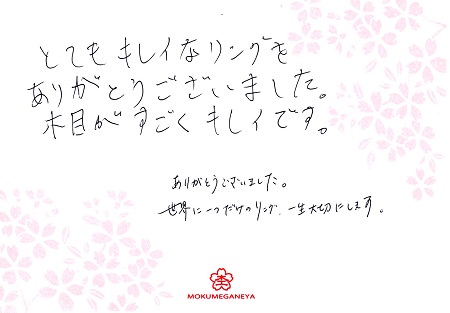 とてもキレイなリングを
ありがとうございました。
木目がすごくキレイです。
ありがとうございました。
世界に一つだけのリング、一生大切にします。
MOKUMEGANEYA